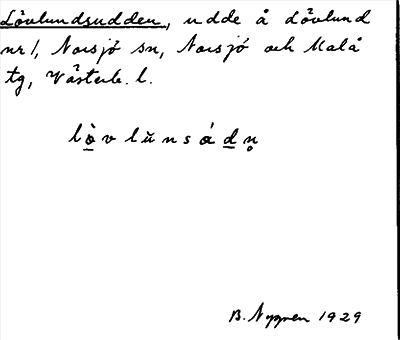 Lövlundsudden, udde å Lövlund
nr 1, Norsjö sn, Norsjö och Malå
tg, Västerb. l.
lò̱v lŭn s á ḏ n̥
B. Nyman 1929